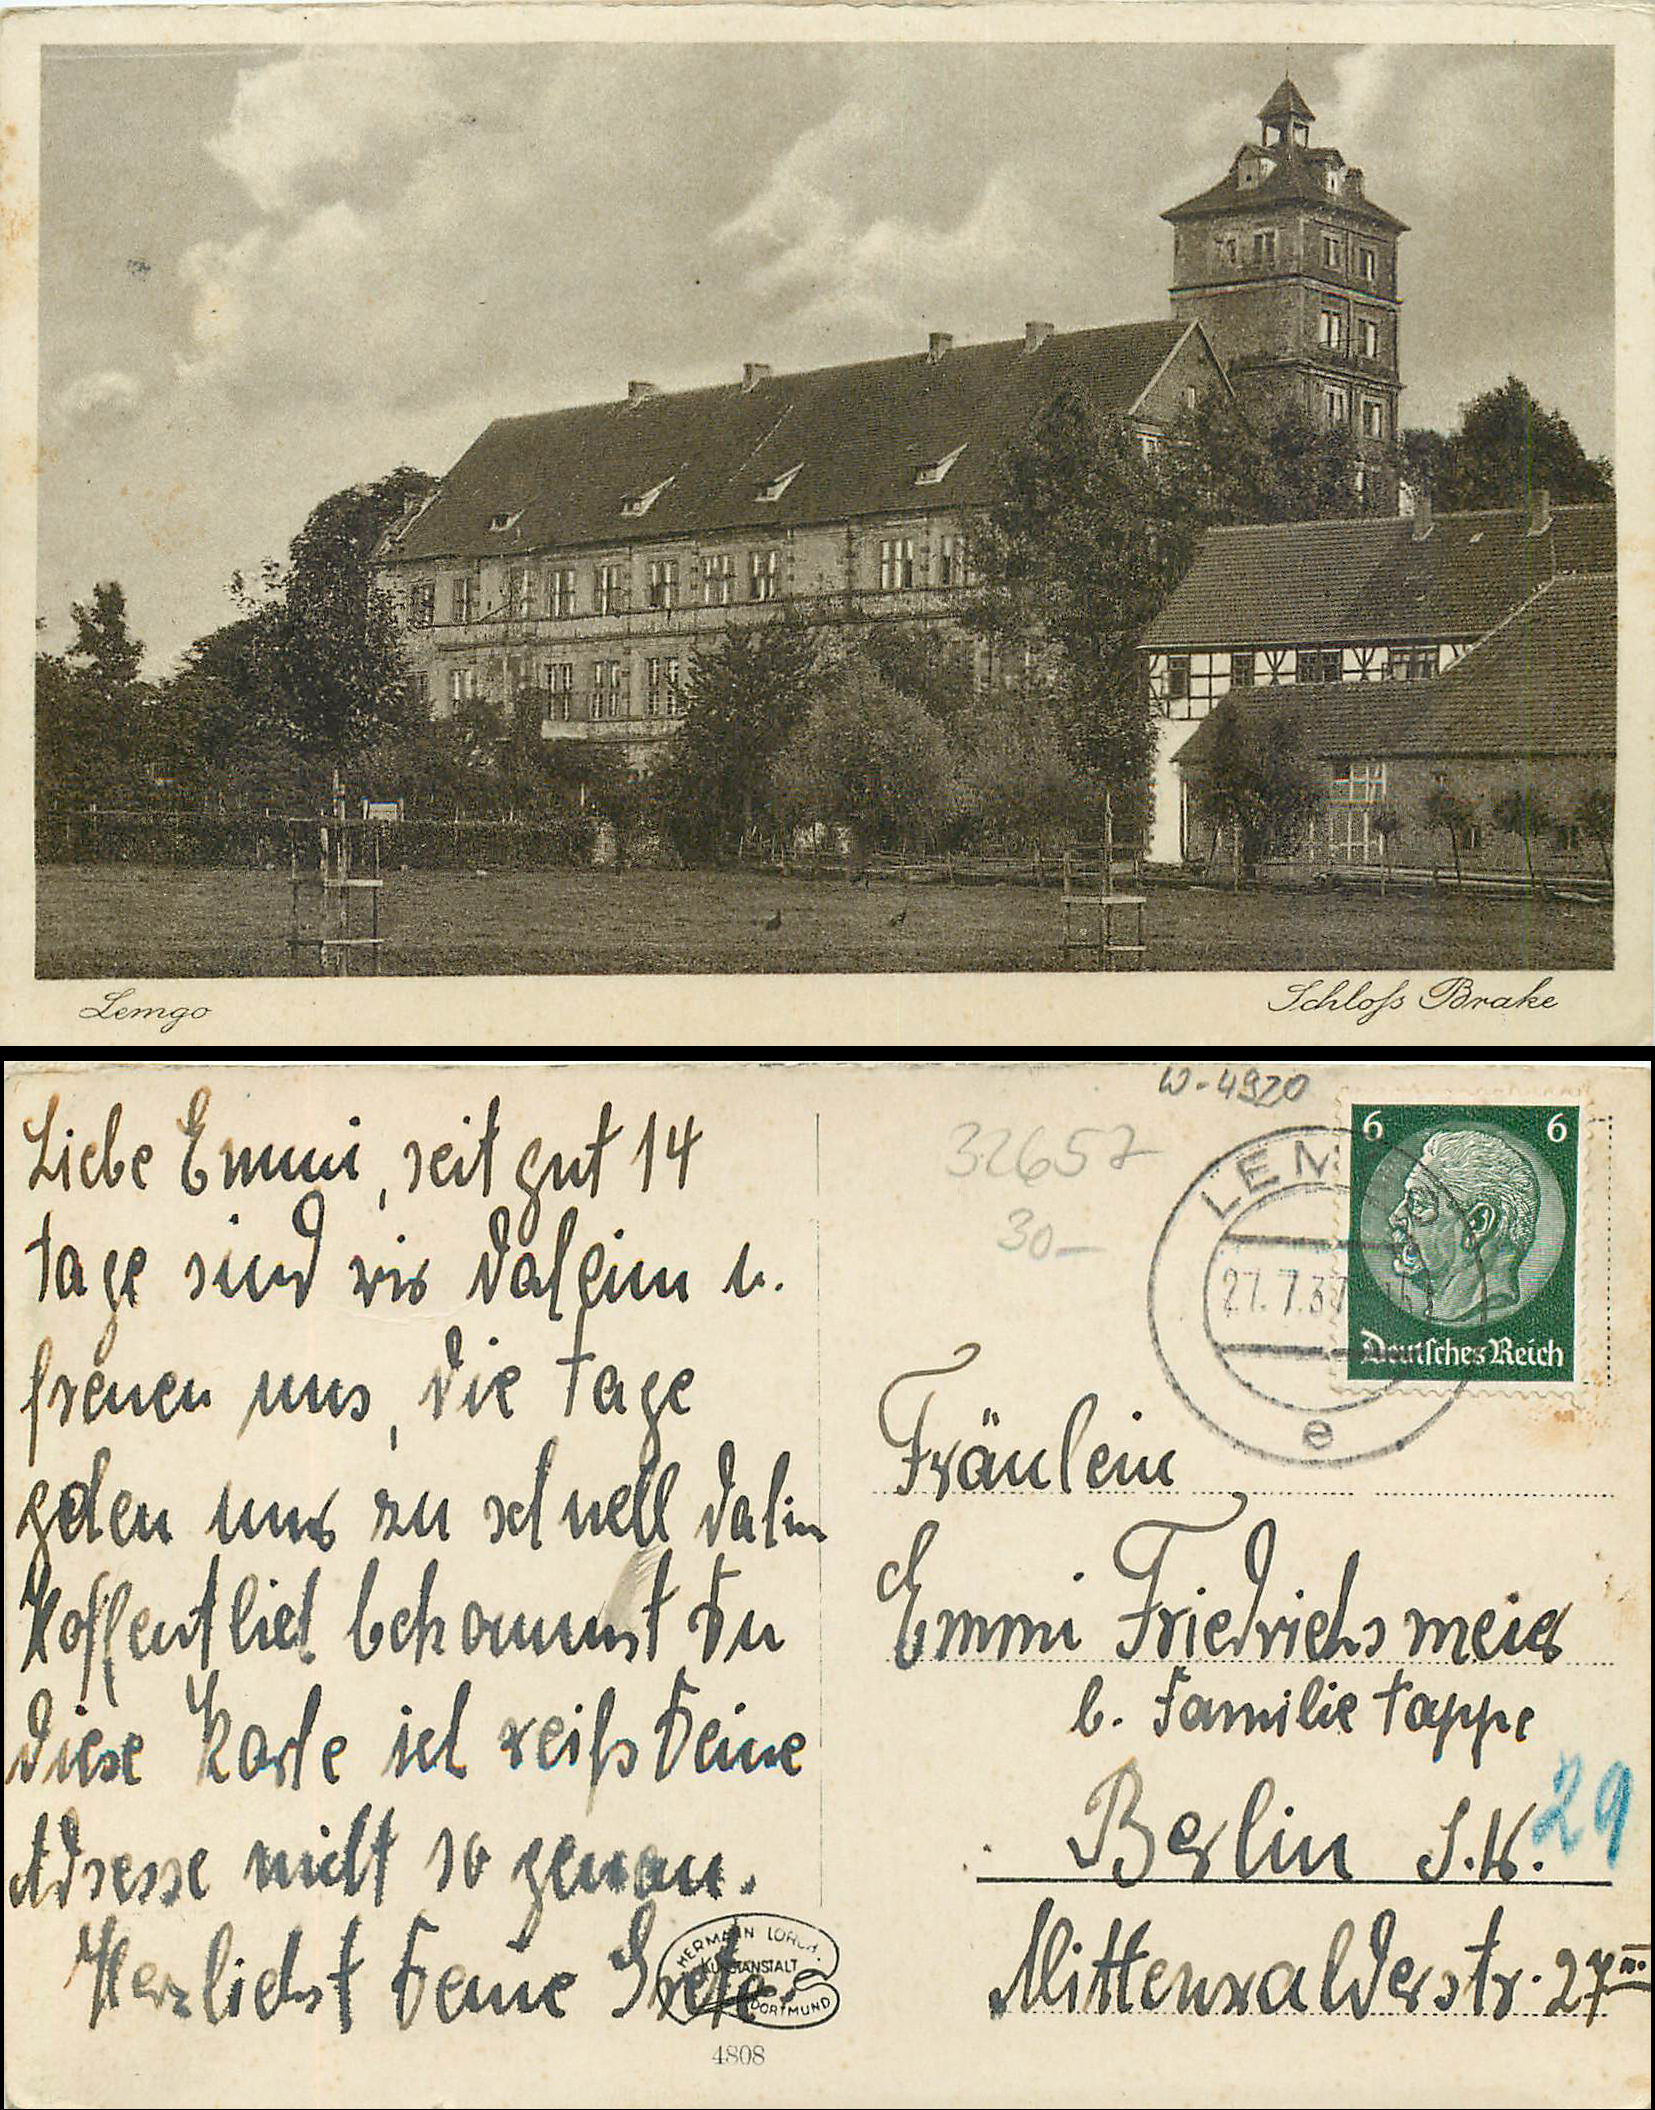 Lemgo
Schloß Brake
Liebe Emmi, seit gut 14
Tage sind wir daheim u.
freuen uns, die Tage
gehen uns zu schnell dahin
Hoffentlich bekommst Du
diese Karte ich weiß Deine
Adresse nicht so genau.
Herzlichst Deine Grete
HERMANN LORCH.
KUNSTANSTALT
DORTMUND
4808
W-4920
32657
30-
LEM
27.7.37
e
6 6
Deutsches Reich
Fräulein
Emmi Friedrichsmeier
b. Familie Tappe
Berlin S.W. 29
Mittenwalderstr. 27